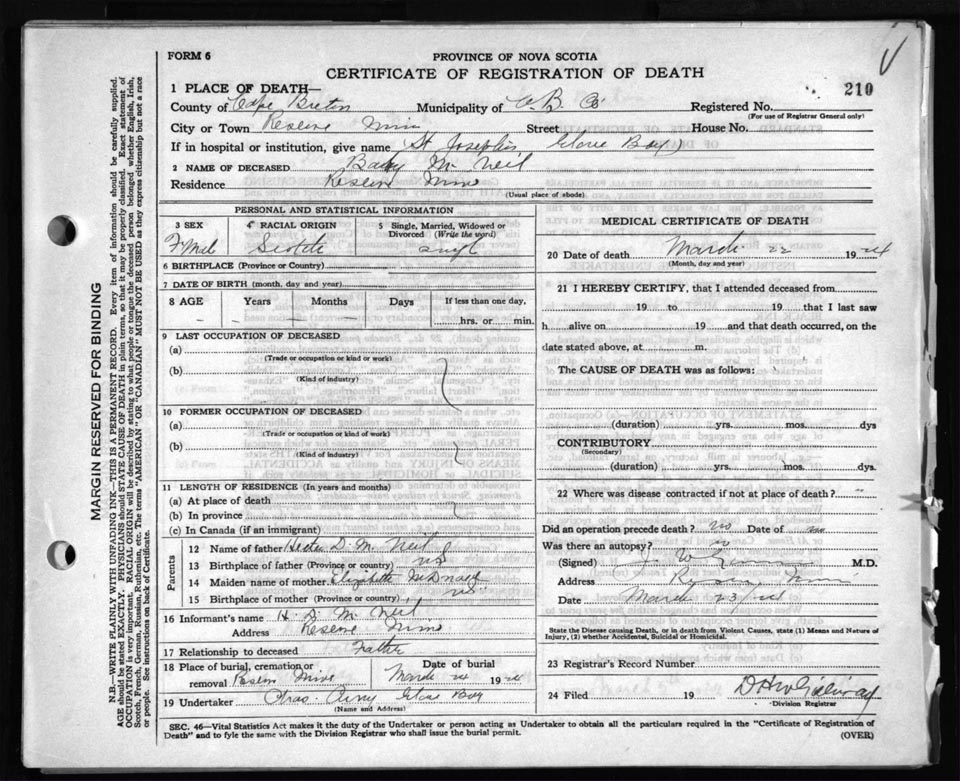 FORM 6
PROVINCE OF NOVA SCOTIA
CERTIFICATE OF REGISTRATION OF DEATH
210
1 PLACE OF DEATH—
County of Cape Breton Municipality of C. B. Co Registered No.
(For use of Registrar General only)
City or Town Reserve Mines Street House No.
If in hospital or institution, give name St Josephs Glace Bay
2 NAME OF DECEASED Baby McNeil
Residence Reserve Mines
(Usual place of abode)
PERSONAL AND STATISTICAL INFORMATION
3 SEX 4 RACIAL ORIGIN 5 Single, Married, Widowed or Divorced (Write the word)
F Mal Scotch Single
6 BIRTHPLACE (Province or Country)
7 DATE OF BIRTH (month, day and year)
8 AGE Years Months Days If less than one day,
hrs. or min.
9 LAST OCCUPATION OF DECEASED
(a)
(Trade or occupation or kind or work)
(b)
(Kind of industry)
10 FORMER OCCUPATION OF DECEASED
(a)
(Trade or occupation or kind of work)
(b)
(Kind of industry)
11 LENGTH OF RESIDENCE (In years and months)
(a) At place of death
(b) In province
(c) In Canada (if an immigrant)
Parents
12 Name of father Hector D. McNeil
13 Birthplace of father (Province or country) NS
14 Maiden name of mother Elizabeth McDonald
15 Birthplace of mother (Province or country) NS
16 Informant's name H. D. McNeil
Address Reserve Mines
17 Relationship to deceased Father
18 Place of burial, cremation or removal Reserve Mines Date of burial March 24 1924
19 Undertaker Chas. Glace Bay
(Name and Address)
MEDICAL CERTIFICATE OF DEATH
20 Date of death March 22 1924
(Month, day and year)
21 I HEREBY CERTIFY, that I attended deceased from
19 to 19 that I last saw
h alive on 19 and that death occurred, on the
date stated above, at m.
The CAUSE OF DEATH was as follows:
(duration) yrs. mos. dys
CONTRIBUTORY
(Secondary)
(duration) yrs. mos. dys.
22 Where was disease contracted if not at place of death?
Did an operation precede death? no Date of
Was there an autopsy? no
(Signed) M.D.
Address Reserve Mines
Date March 23/24
State the Disease causing Death, or in death from Violent Causes, state (1) Means and Nature of
Injury, (2) whether Accidental, Suicidal or Homicidal.
23 Registrar's Record Number
24 Filed 19
Division Registrar
SEC. 46—Vital Statistics Act makes it the duty of the Undertaker or person acting as Undertaker to obtain all the particulars required in the "Certificate of Registration of
Death" and to fyle the same with the Division Registrar who shall issue the burial permit.
(OVER)
MARGIN RESERVED FOR BINDING
N.B.—WRITE PLAINLY WITH UNFADING INK—THIS IS A PERMANENT RECORD. Every item of information should be carefully supplied.
AGE should be stated EXACTLY. PHYSICIANS should STATE CAUSE OF DEATH in plain terms, so that it may be properly classified. Exact statement of
OCCUPATION is very important. RACIAL ORIGIN will be described by stating to what people or tongue the deceased person belonged whether English, Irish,
Scotch, French, German, Russian, Ruthenian, etc. The terms "AMERICAN" OR "CANADIAN" MUST NOT BE USED as they express citizenship but not a race
or people. See instructions on back of Certificate.